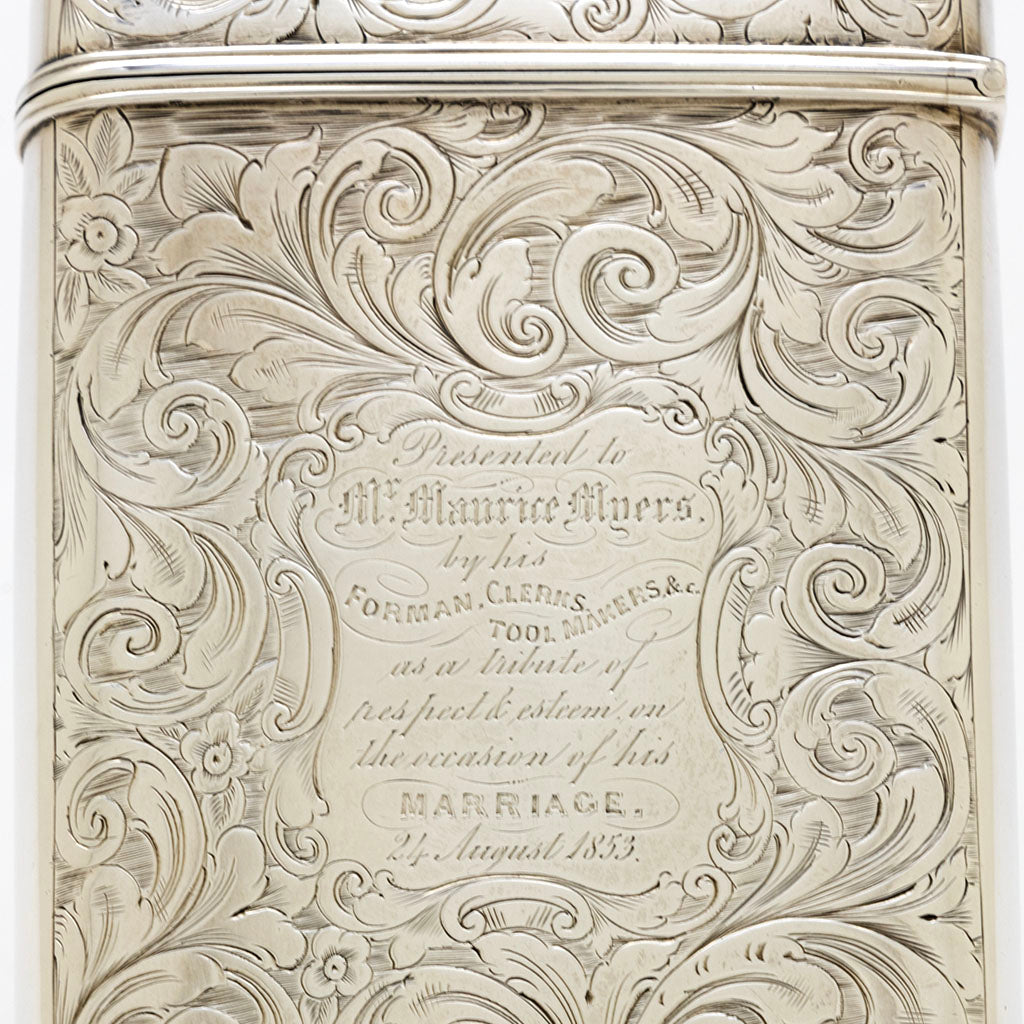 Presented to
Mr. Maurice Myers.
by his
FORMAN, CLERKS,
TOOL MAKERS, & c.
as a tribute of
respect & esteem, on
the occasion of his
MARRIAGE.
24 August 1853.